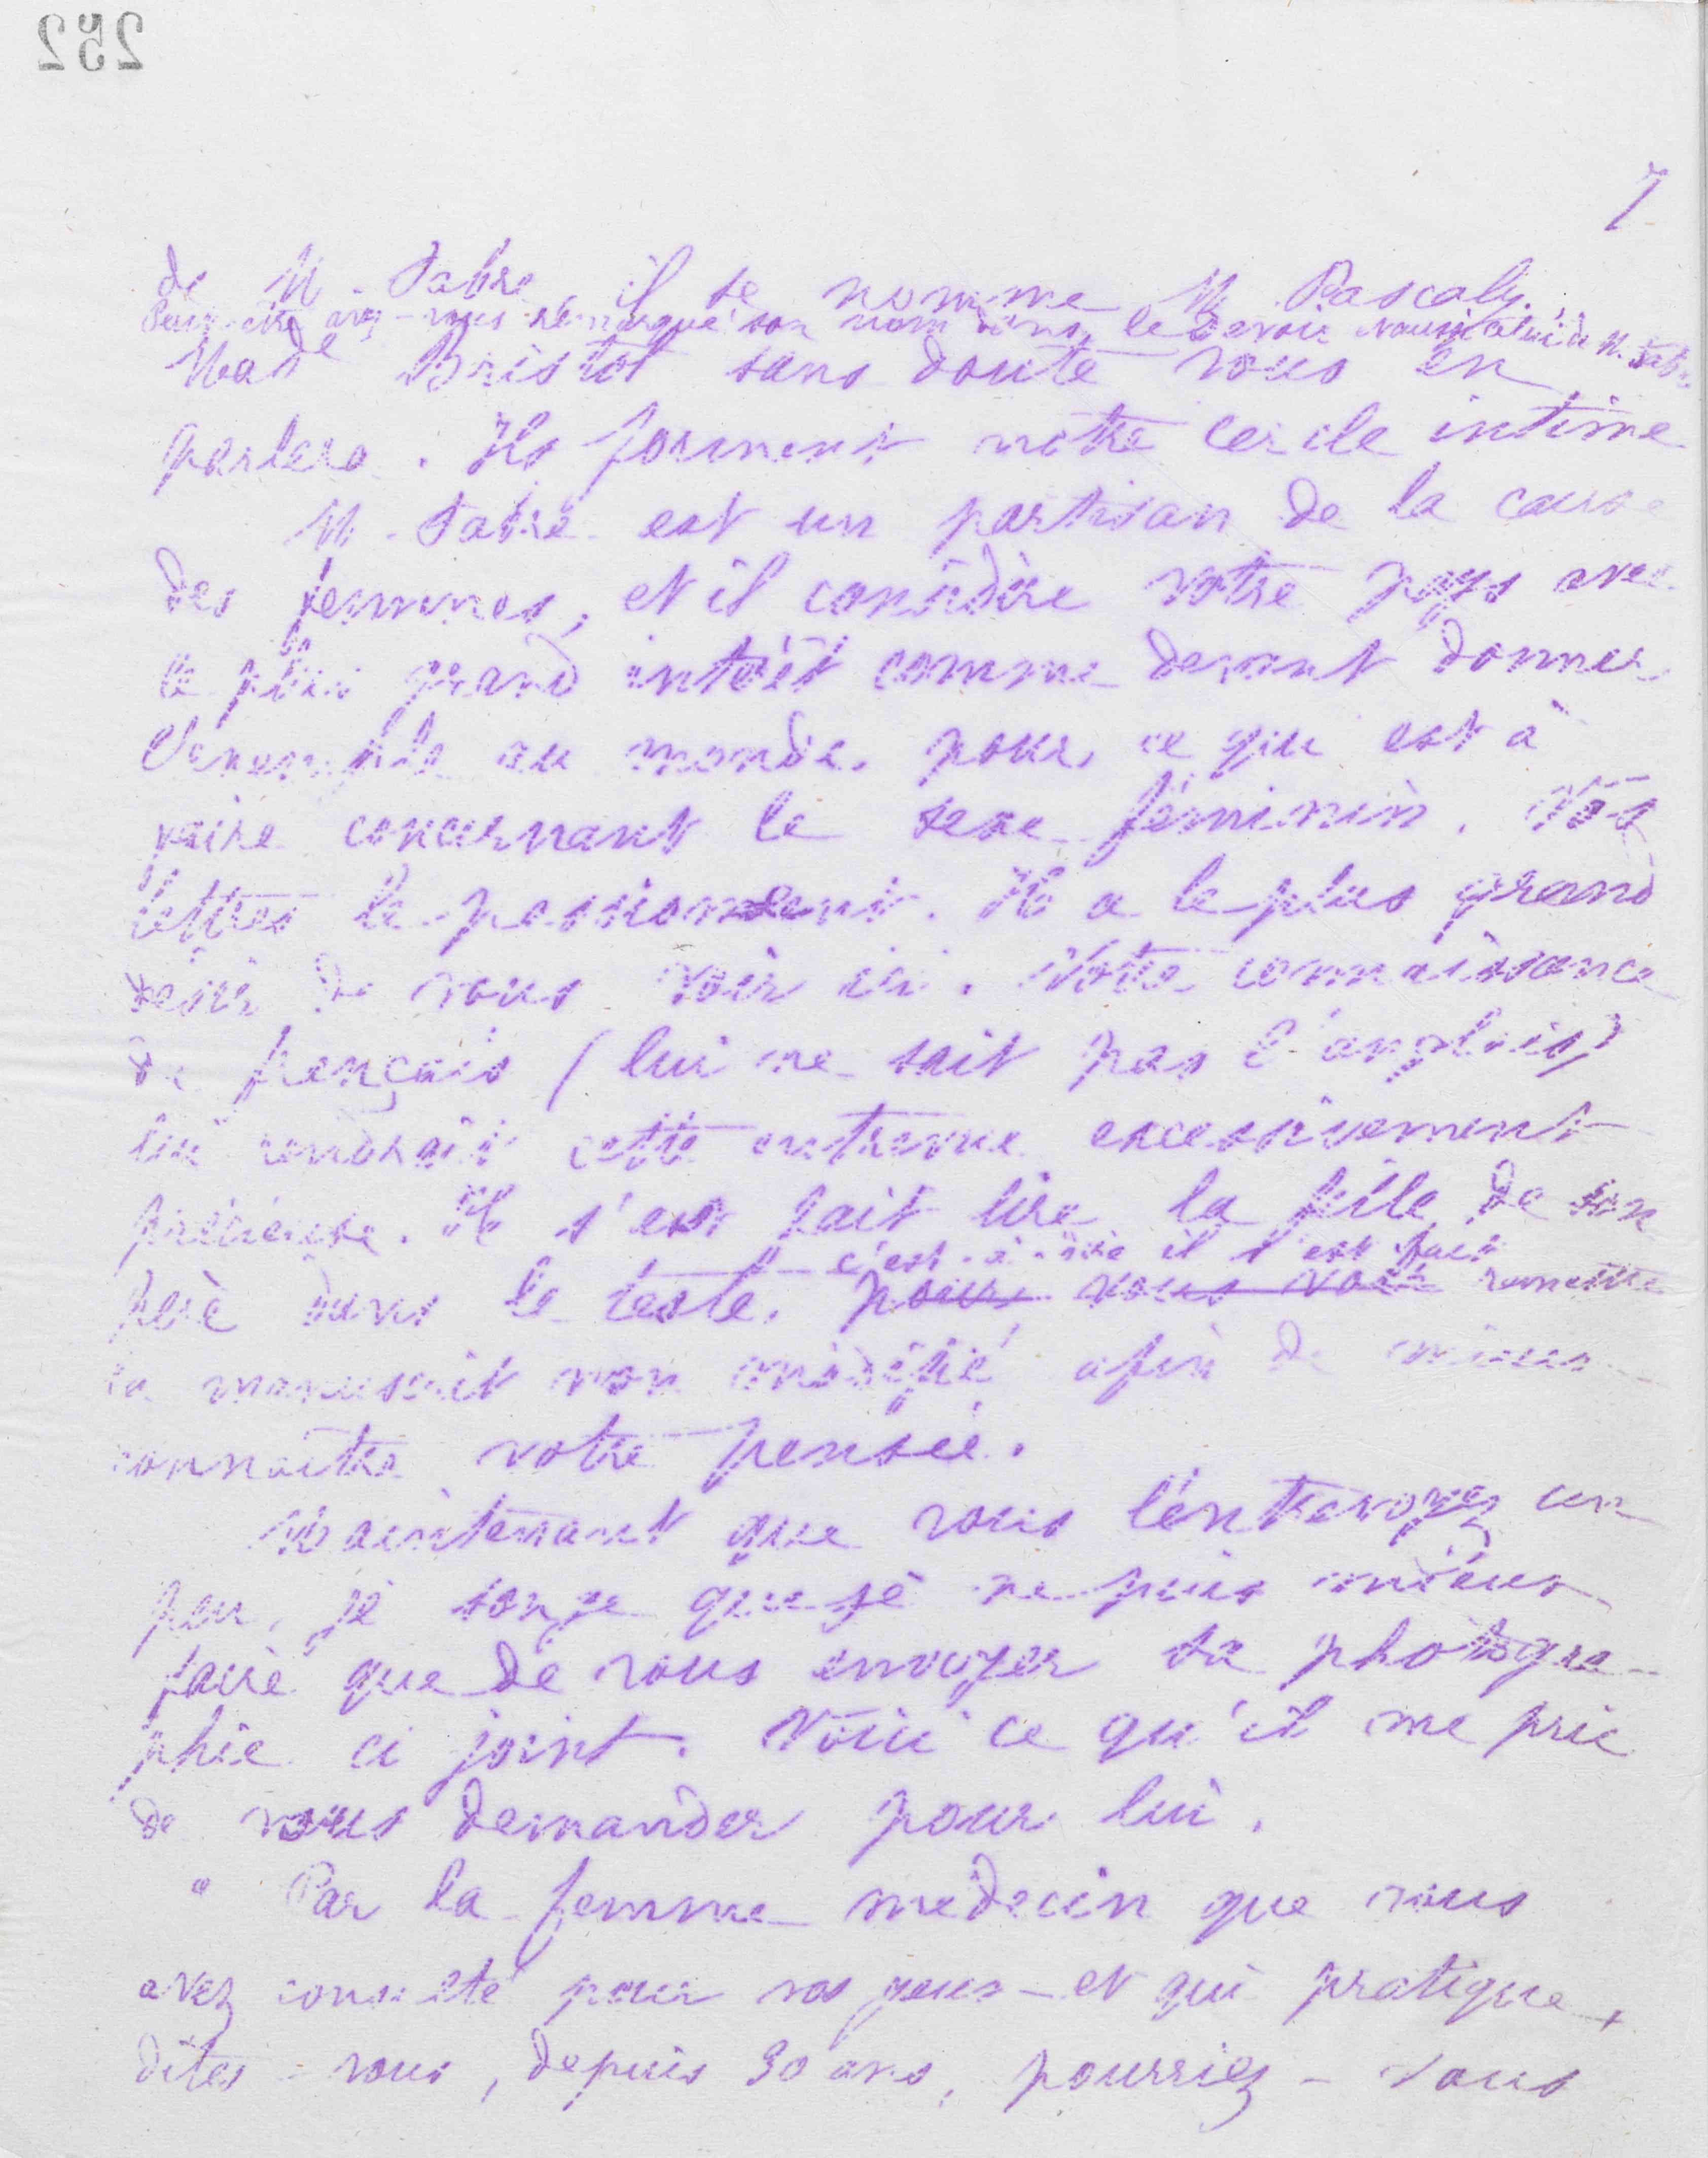 252
7
de M. Fabre, il se nomme M. Pascaly.
Peut-être avez-vous remarqué son nom dans le Devoir aussi celui de M. Fabre
Made Bristol sans doute vous en
parlera. Ils forment notre cercle intime
M. Fabre est un partisan de la cause
des femmes, et il considère votre pays avec
le plus grand intérêt comme devant donner
l'exemple au monde, pour ce qui est à
faire concernant le sexe féminin. Vos
lettres le passionnent. Il a le plus grand
désir de vous voir ici. Votre connaissance
du français (lui ne sait pas l'anglais)
lui rendrait cette entrevue excessivement
précieuse. Il s'est fait lire la fille de son
c'est-à-dire il s'est fait
père dans le texte, pour vous voir remettre
le manuscrit non modifié afin de mieux
connaître votre pensée.
Maintenant que vous l'entrevoyez un
peu, je songe que je ne puis mieux
faire que de vous envoyer sa photogra-
phie ci joint. Voici ce qu'il me prie
de vous demander pour lui.
" Par la femme médecin que vous
avez consulté pour vos yeux - et qui pratique,
dites-vous, depuis 30 ans, pourriez-vous